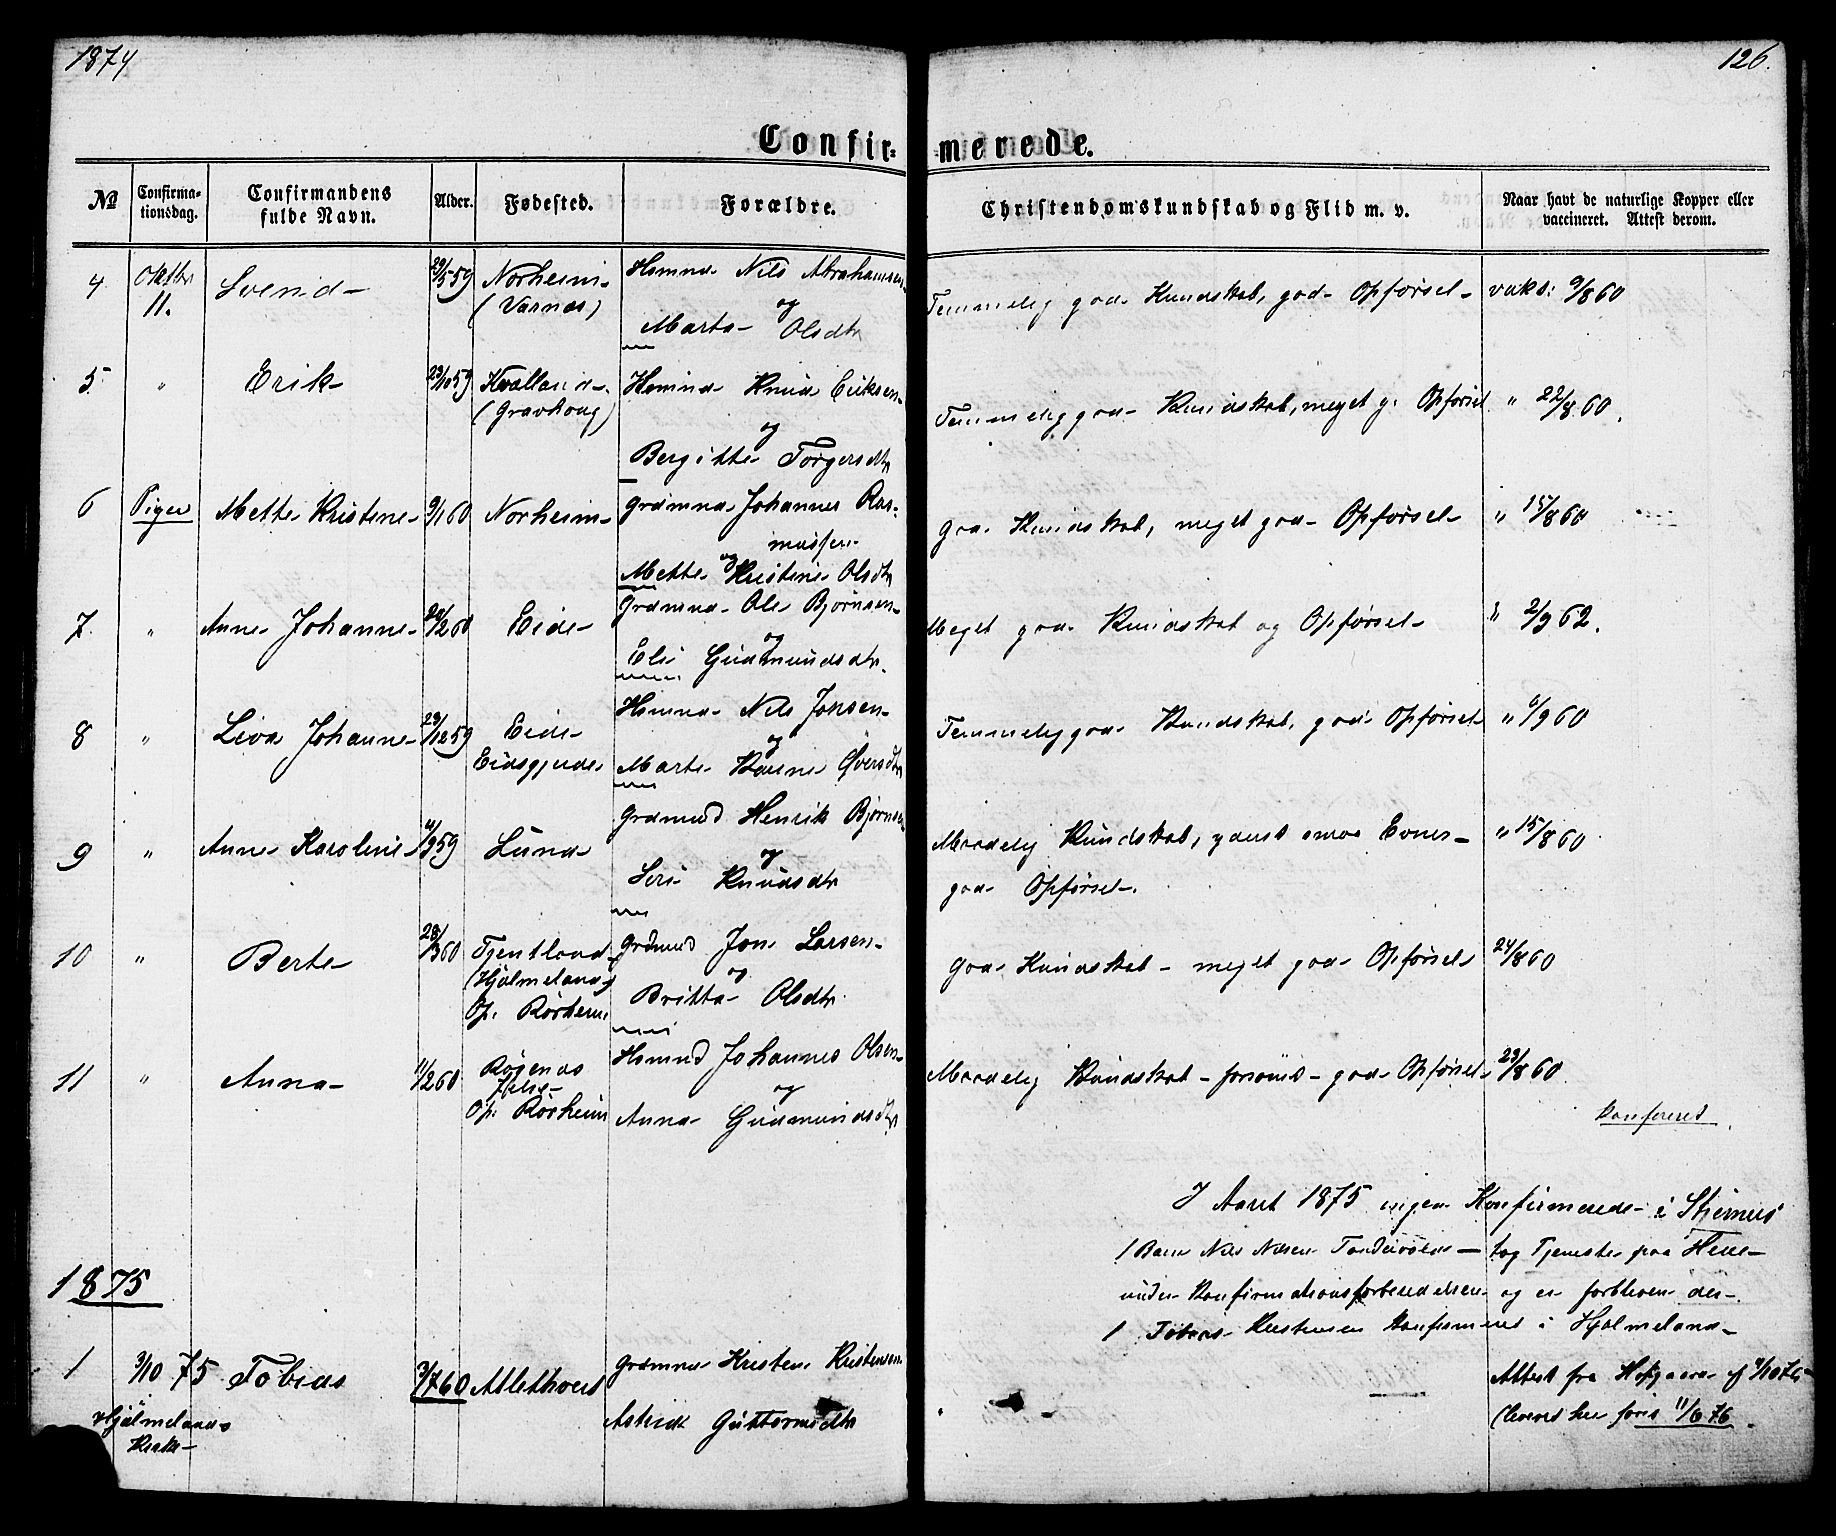 1874
126.
Confir-
merede.
No
Confirma-
tionsdag.
Confirmandens
fulde Navn.
Alder.
Fødested.
Forældre.
Christendomskundskab og Flid m. v.
Naar havt de naturlige Kopper eller
vaccineret. Attest derom.
4 Oktbr 11. Svend 59 Norheim Nils Abrahamsen
(Varnes)
og
Marta Olsdtr
Temmelig god Kundskab, god Opførsel vaks: 9/8 60
5. " Erik 23/10 59 Kvalland Knud Eriksen
(Gravhoug)
og
Bergitte Torgersdtr
Temmelig god Kundskab, meget g. Opførsel " 22/8 60.
6 Piger Mette Kristine 9/1 60 Norheim Grdmnd Johannes Ras-
mussen
og
Mette Kristine Olsdtr
god Kundskab, meget god Opførsel " 15/8 60
7. " Anne Johanne 2 60 Eide Grdmnd Ole Bjørnsen
og
Eli Gudmundsdtr.
Meget god Kundskab og Opførsel " 2/9 62.
8 " Liva Johanne 29/12 59 Eide Nils Jonsen
Eidsgjerde
og
Marte Karine
Temmelig god Kundskab, god Opførsel " 6/9 60
9 " Anne Karoline 9 59 Lund Grdmnd Henrik Bjørnsen
og
Siri Knudsdtr
Maadelig Kundskab, ganske smaa Evner " 15/8 60
god Opførsel.
10 " Berte 28/3 60 Tjentland Grdmnd Jon Larsen
(Hjelmeland)
og
Op. Rørheim
Britta Olsdtr
god Kundskab - meget god Opførsel 24/8 60
11 " Anna 11/2 60 Johannes Olsen
Jelse
og
Op. Rørheim
Anna Gudmundsdtr
Maadelig Kundskab god Opførsel 29/8 60
konfereret.
I Aaret 1875 ingen Konfirmerede i
1 Barn Nils Nilsen tog Tjeneste paa
under Konfirmationsforberedelsen og er forbleven der.
1 Tobias Kristensen Konfirmeret i Hjelmeland
1875
1 3/10 75 Tobias 3/7 60 Atlethveit Grdmnd Kristen Kristensen
Hjelmelands
Kirke
Astrid Guttormsdtr
Attest fra
(leveret her først 11/6 76.